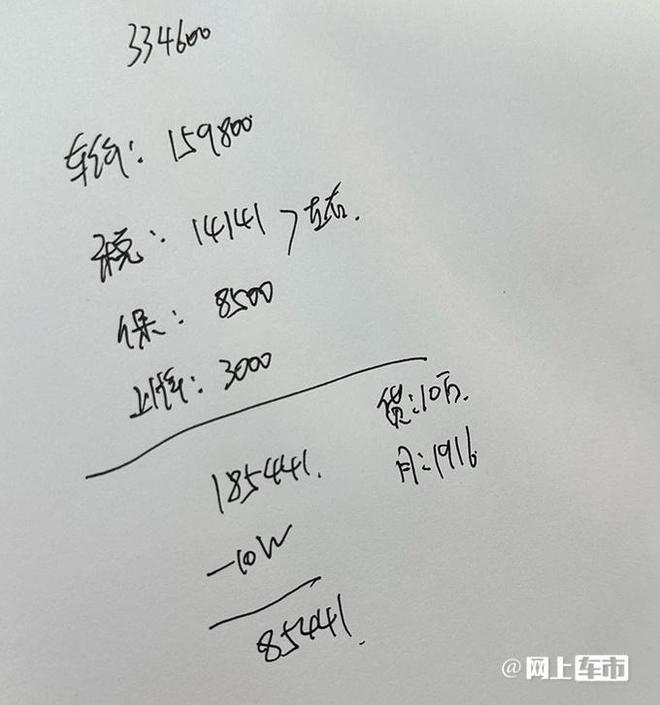 334600
车价: 159800
税: 14141 > 左右.
保: 8500
上牌: 3000
贷: 10万.
月: 1916
185441.
-10W
85441.
@网上车市